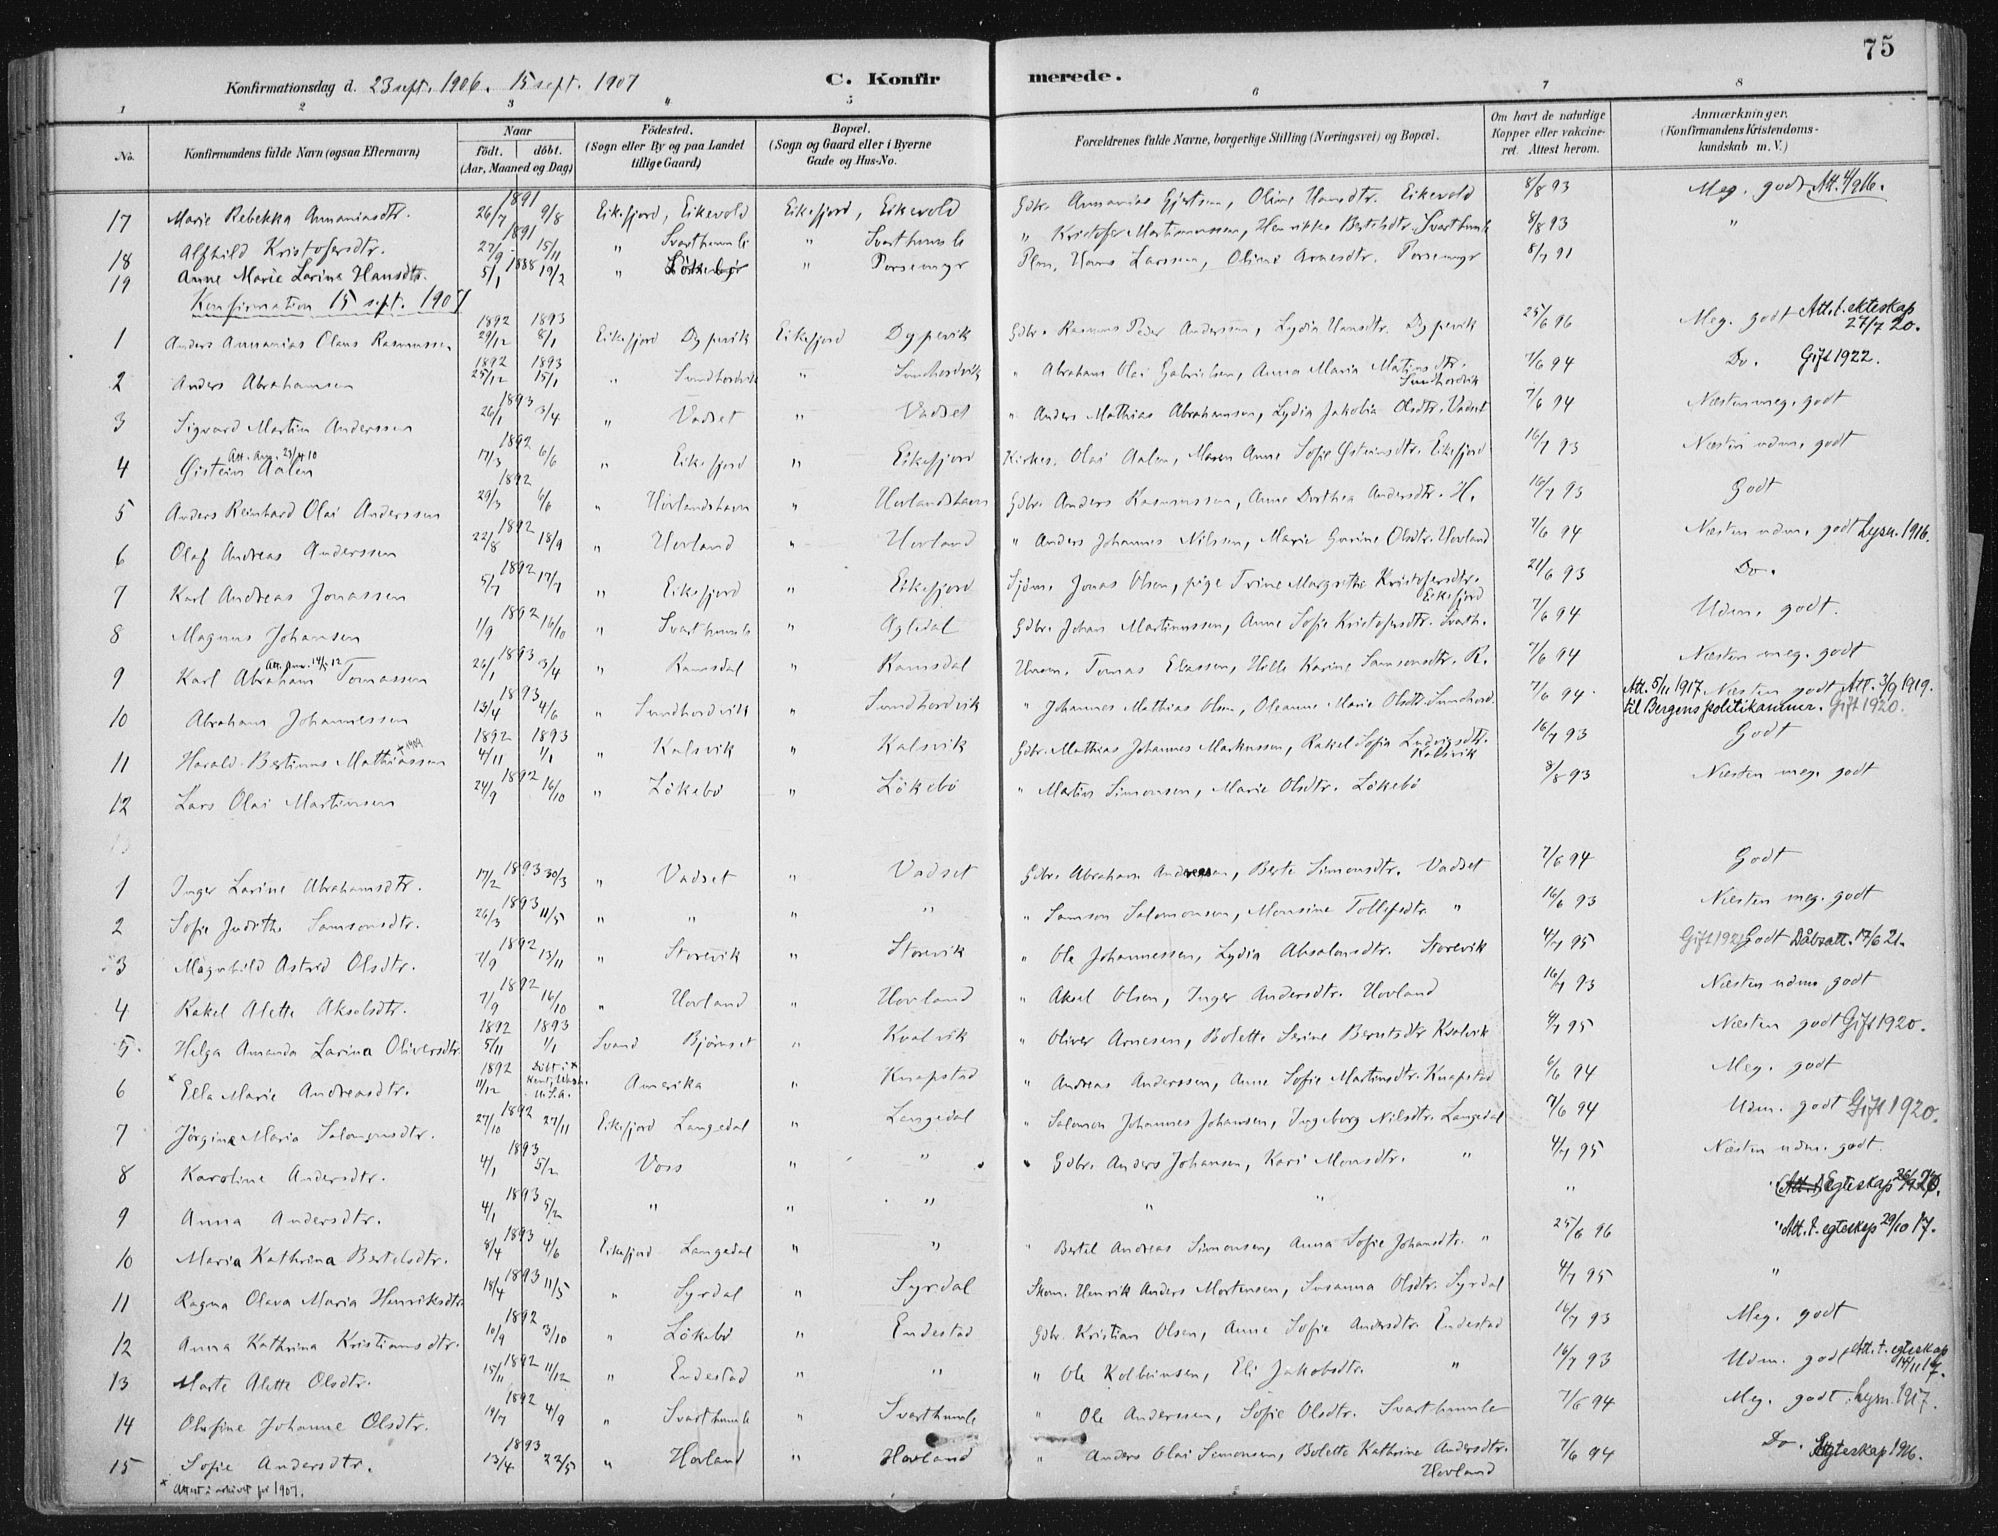 75
Konfirmationsdag d. 23 sept. 1906. 15 sept. 1907 C. Konfirmerede.
1 2 3 4 5 6 7 8
No. Konfirmandens fulde Navn (ogsaa Efternavn) Naar født. døbt. (Aar, Maaned og Dag) Fødested. (Sogn eller By og paa Landet tillige Gaard) Bopæl. (Sogn og Gaard eller i Byerne Gade og Hus-No. Forældrenes fulde Navne, borgerlige Stilling (Næringsvei) og Bopæl. Om havt de naturlige Kopper eller vakcineret. Attest herom. Anmærkninger. (Konfirmandens Kristendomskundskab m. V.)
17 Marie Rebekka Annaniasdtr. 1891 26/7 9/8 Eikefjord, Eikevold Eikefjord, Eikevold Gdbr. Annanias Gjertsen, Oline Hansdtr. Eikevold 8/8 93 Meg. godt Att. 4/9 16.
18 Alfhild Kristofersdtr. 1891 27/9 15/11 " Svarthumle " Svarthumle " Kristofer Martinussen, Henrikke Bertelsdtr. Svarthumle 8/8 93 "
19 Anne Marie Larina Hansdtr. 1888 5/1 19/2 " " Porsemyr Plm. Hans Larssen, Oline Arnesdtr. Porsemyr 8/7 91
Konfirmation 15 sept. 1907
1 Anders Annanias Olaus Rasmussen 1892 29/12 1893 8/1 Eikefjord Dypevik Eikefjord Dypevik Gdbr. Rasmus Peder Anderssen, Lydia Hansdtr. Dypevik 25/6 96 Meg. godt Att. t. ekteskap 27/7 20.
2 Anders Abrahamsen 1892 25/12 1893 15/1 " Sundhordvik " Sundhordvik " Abraham Olai Gabrielsen, Anna Maria Matiasdtr. Sundhordvik 7/6 94 Do. Gift 1922.
3 Sigvard Martin Anderssen 1893 26/1 3/4 " Vadset " Vadset " Anders Mathias Abrahamsen, Lydia Jakobia Olsdtr. Vadset 7/6 94 Næsten meg. godt
4 Øistein Aalen Att. 23/4 10 1892 17/3 6/6 " Eikefjord " Eikefjord Kirkes. Olai Aalen, Maren Anne Sofie Østeinsdtr. Eikefjord 16/7 93 Næsten udm. godt
5 Anders Reinhard Olai Anderssen 1892 29/3 6/6 " Hovlandshavn " Hovlandshavn Gdbr. Anders Rasmussen, Anne Dorthea Andersdtr. H. 16/7 93 Godt
6 Olaf Andreas Anderssen 1892 22/8 18/9 " Hovland " Hovland " Anders Johannes Nilssen, Marie Gurine Olsdtr. Hovland 7/6 94 Næsten udm. godt Lysn. 1916.
7 Karl Andreas Jonassen 1892 5/7 17/7 " Eikefjord " Eikefjord Sjøm. Jonas Olsen, pige Trine Margrethe Kristofersdtr. Eikefjord 21/6 93 Do.
8 Magnus Johansen 1892 1/9 16/10 " Svarthumle " Agledal Gdbr. Johan Martinussen, Anne Sofie Kristofersdtr. Svarth. 7/6 94 Udm. godt.
9 Karl Abraham Tomassen Att. 14/5 12 1893 26/1 3/4 " Ramsdal " Ramsdal Husm. Tomas Eliassen, Hille Karine Samsonsdtr. R. 7/6 94 Næsten meg. godt
10 Abraham Johannessen 1893 13/4 4/6 " Sundhordvik " Sundhordvik " Johannes Mathias Olsen, Oleanne Marie Olsdtr. Sundhord. 7/6 94 Att. 5/11 1917 Næsten godt Att. 3/9 1919. til Bergens politikammer. Gift 1920.
11 Harald Bertinus Mathiassen + 1909 1892 4/11 1893 1/1 " Kalsvik " Kalsvik Gdbr. Mathias Johannes Markussen, Rakel Sofia Ludvigsdtr. Kalsvik 16/7 93 Godt
12 Lars Olai Martinsen 1892 24/9 16/10 " Løkebø " Løkebø " Martin Simonsen, Marie Olsdtr. Løkebø 8/8 93 Næsten meg. godt
1 Inger Larine Abrahamsdtr. 1893 17/2 30/3 " Vadset " Vadset Gdbr. Abraham Anderssen, Berte Simonsdtr. Vadset 7/6 94 Godt
2 Sofie Judithe Samsonsdtr. 1893 26/3 11/5 " " " " " Samson Salomonsen, Monsine Tollefsdtr. " 16/6 93 Næsten meg. godt
3 Magnhild Astrid Olsdtr. 1892 7/9 13/11 " Storevik " Storevik " Ole Johannessen, Lydia Absalonsdtr. Storevik 4/7 95 Gift 1921 Godt Dåbsatt. 17/6 21.
4 Rakel Alette Akselsdtr. 1892 7/9 16/10 " Hovland " Hovland " Aksel Olsen, Inger Andersdtr. Hovland 16/7 93 Næsten udm. godt
5 Helga Amanda Larina Oliversdtr. 1892 5/11 1893 1/1 Svanø Bjørnset " Kvalvik " Oliver Arnesen, Bolette Serine Berntsdtr. Kvalvik 4/7 95 Næsten godt Gift 1920.
6 x Ella Marie Andreasdtr. 1892 11/12 Døbt i x Kent, Wash. U.S.A. Amerika " Knapstad " Andreas Anderssen, Anne Sofie Martinsdtr. Knapstad 6/6 94 Meg. godt
7 Jørgine Maria Salomonsdtr. 1892 27/10 27/11 Eikefjord Langedal " Langedal " Salomon Johannes Johansen, Ingeborg Nilsdtr. Langedal 7/6 94 Udm. godt Gift 1920.
8 Karoline Andersdtr. 1893 4/1 5/2 Voss " " Gdbr. Anders Johansen, Kari Monsdtr. " 4/7 95 Næsten udm. godt.
9 Anna Andersdtr. 1893 4/1 5/2 " " " " " " Egteskap
10 Maria Kathrina Bertelsdtr. 1893 8/4 4/6 Eikefjord Langedal " " " Bertil Andreas Simonsen, Anna Sofie Johansdtr. " 25/6 96 " Att. t. egteskap 29/10 17.
11 Ragna Olava Maria Henriksdtr. 1893 18/4 11/5 " Syrdal " Syrdal Skom. Henrik Anders Mortensen, Susanna Olsdtr. Syrdal 4/7 95 "
12 Anna Kathrina Kristiansdtr. 1892 10/9 3/10 " Løkebø " Endestad Gdbr. Kristian Olsen, Anne Sofie Andersdtr. Endestad 16/7 93 Meg. godt
13 Marte Alette Olsdtr. 1892 15/11 11/12 " Endestad " " " Ole Kolbeinsen, Eli Jakobsdtr. " 16/7 93 Udm. godt Att. t. egteskap 14/11 17.
14 Olufine Johanne Olsdtr. 1892 19/7 4/9 " Svarthumle " Svarthumle " Ole Anderssen, Sofie Olsdtr. Svarthumle 7/6 94 Meg. godt Lysn. 1917.
15 Sofie Andersdtr. 1893 13/4 22/5 " Hovland " Hovland " Anders Olai Simonsen, Bolette Kathrine Andersdtr. Hovland 7/6 94 Do. Egteskap 1916.
x Attest i arkivet for 1907.